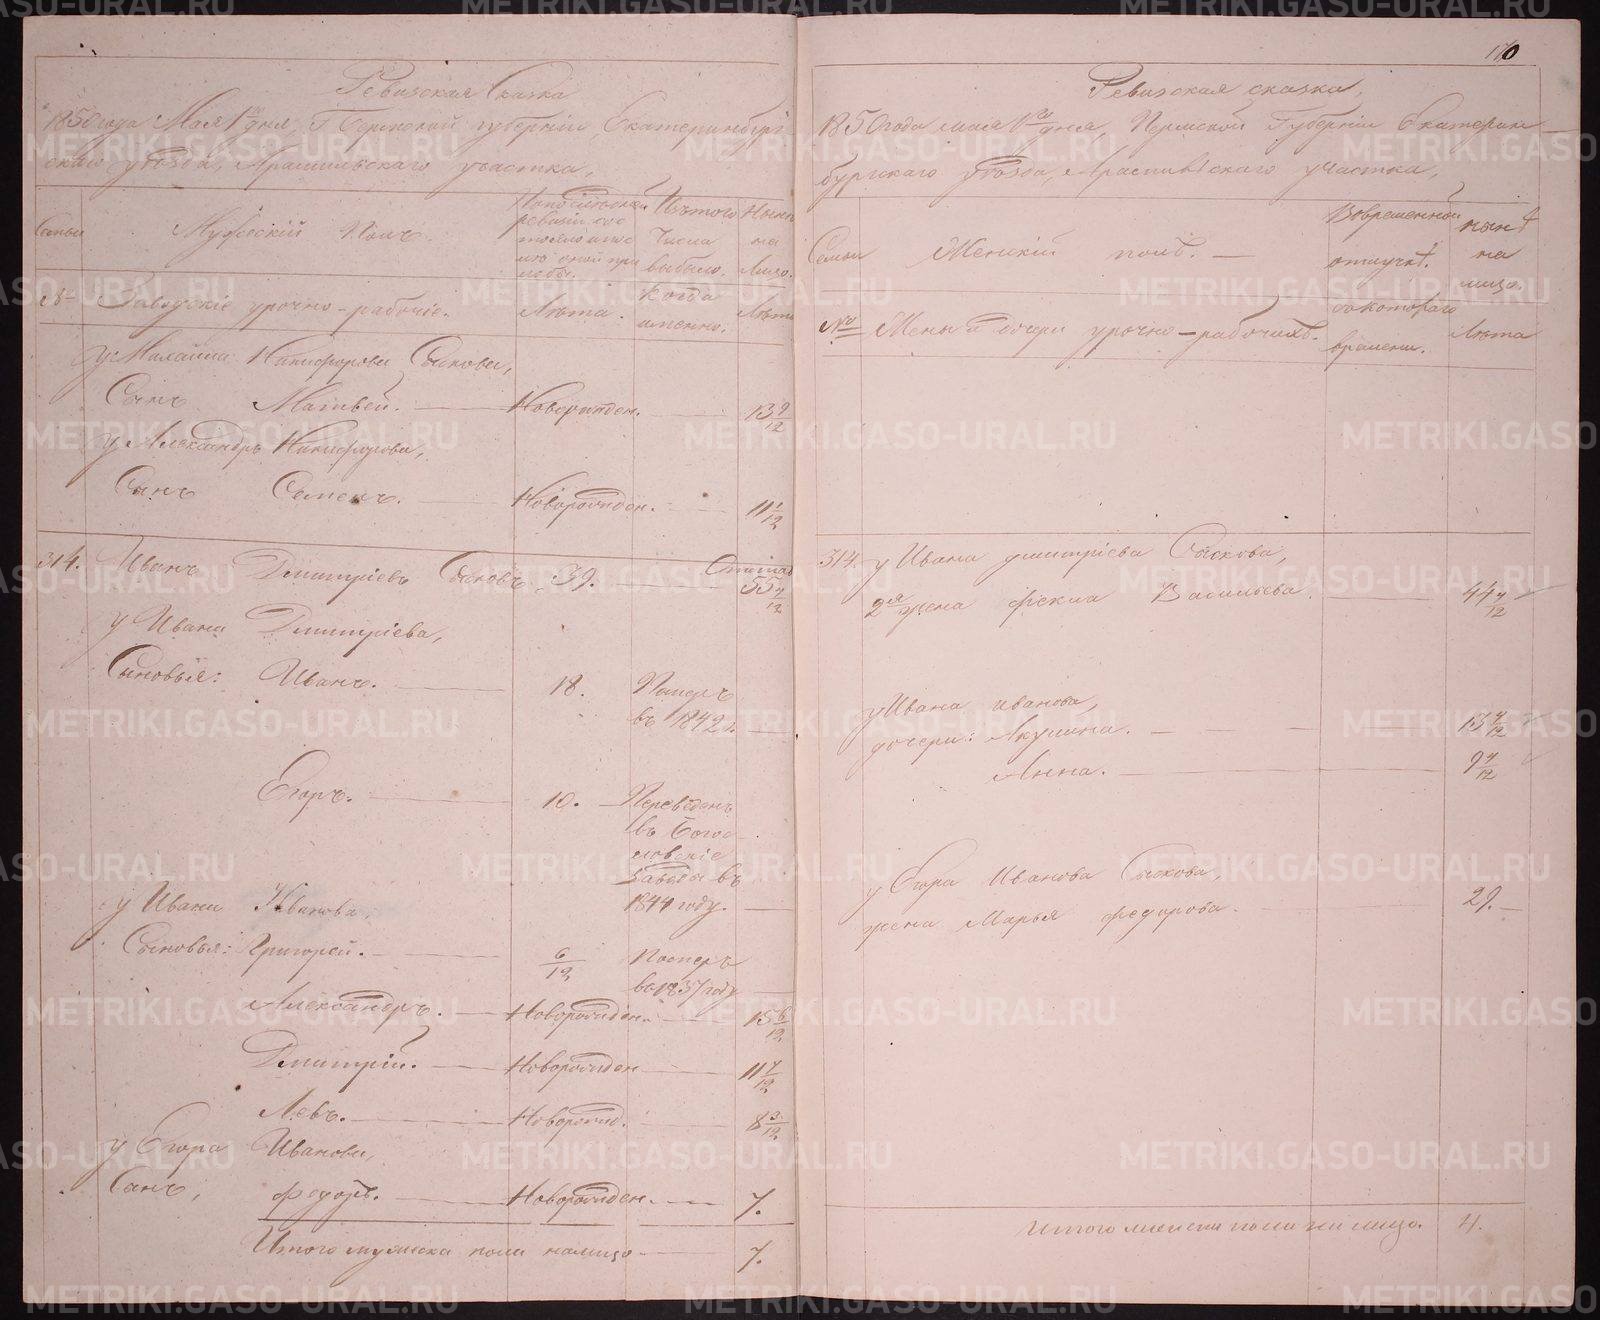 170
Ревизская Сказка
1850 года Мая 1го дня, Пермской губернии Екатеринбург
скаго уѣзда, Арамильскаго участка,
Семьи
Мужескій Полъ.
По послѣдней ревизіи состояло и после оной при
Изъ того числа выбыло.
Нынѣ на лицо.
№
Заводскіе урочно-рабочіе.
Лѣта.
Когда именно.
Лѣта
у Малайма Никифорова Сыскова,
Сынъ Матвей. — Новорожден. — 13 9/12
у Александръ Никифорова,
Сынъ Семенъ. — Новорожден. — 11 1/12
314. Иванъ Дмитріевъ Сысковъ 39. — 55 4/12
у Ивана Дмитріева,
Сыновья: Иванъ. — 18. Померъ
въ 1842 г. —
Егоръ. — 10. — Переведенъ
въ Бого
словскіе
заводы въ
1844 году. —
у Ивана Иванова,
Сыновья: Григорей. — 6/12 Померъ
въ 1837 году —
Александръ. — Новорожден. — 15 6/12
Дмитрій. — Новорожден — 11 7/12
Левъ. — Новорожд. — 8 3/12
у Егора Иванова,
Сынъ, Федоръ. — Новорожден. — 7.
Итого мужеска пола налицо — 7.
Ревизская сказка,
1850 года мая 1го дня, Пермской Губерніи Екатерин
бургскаго уѣзда, Арамильскаго участка,
Семьи
Женскій полъ. —
Во временной отлучкѣ.
нынѣ на лицо.
№
Жены и дочери урочно-рабочихъ.
съ котораго времени.
Лѣта
314. у Ивана Дмитріева Сыскова,
2я жена Фекла Васильева. — 44 4/12
у Ивана Иванова,
дочери: Акулина. — — — 13 4/12
Анна. — 9 4/12
у Егора Иванова Сыскова,
жена Марья Федорова. — 29. —
Итого женска пола на лицо. 4.
METRIKI.GASO-URAL.RU